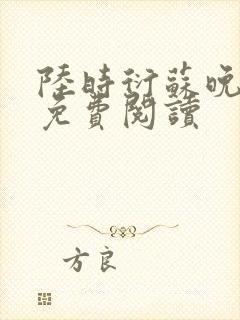 陸時衍蘇晚
免費閱讀
方良